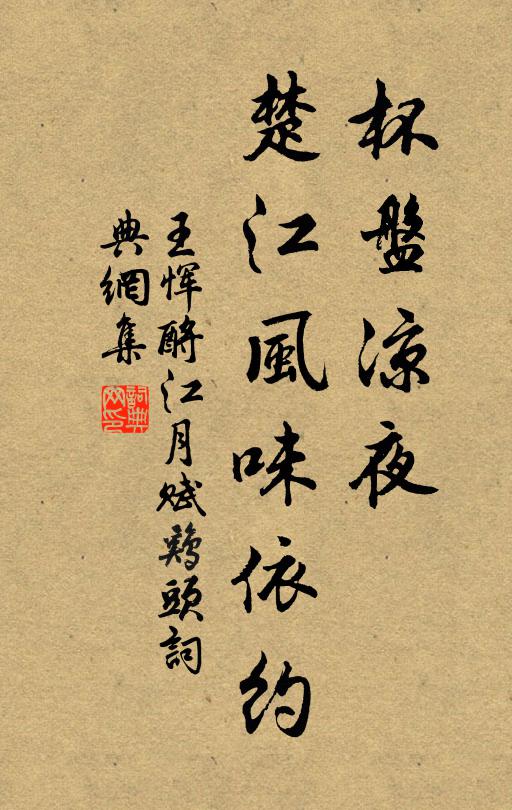 杯盤涼夜
楚江風味依約
王惲酹江月賦鷄頭詞
典網集
詞典網印